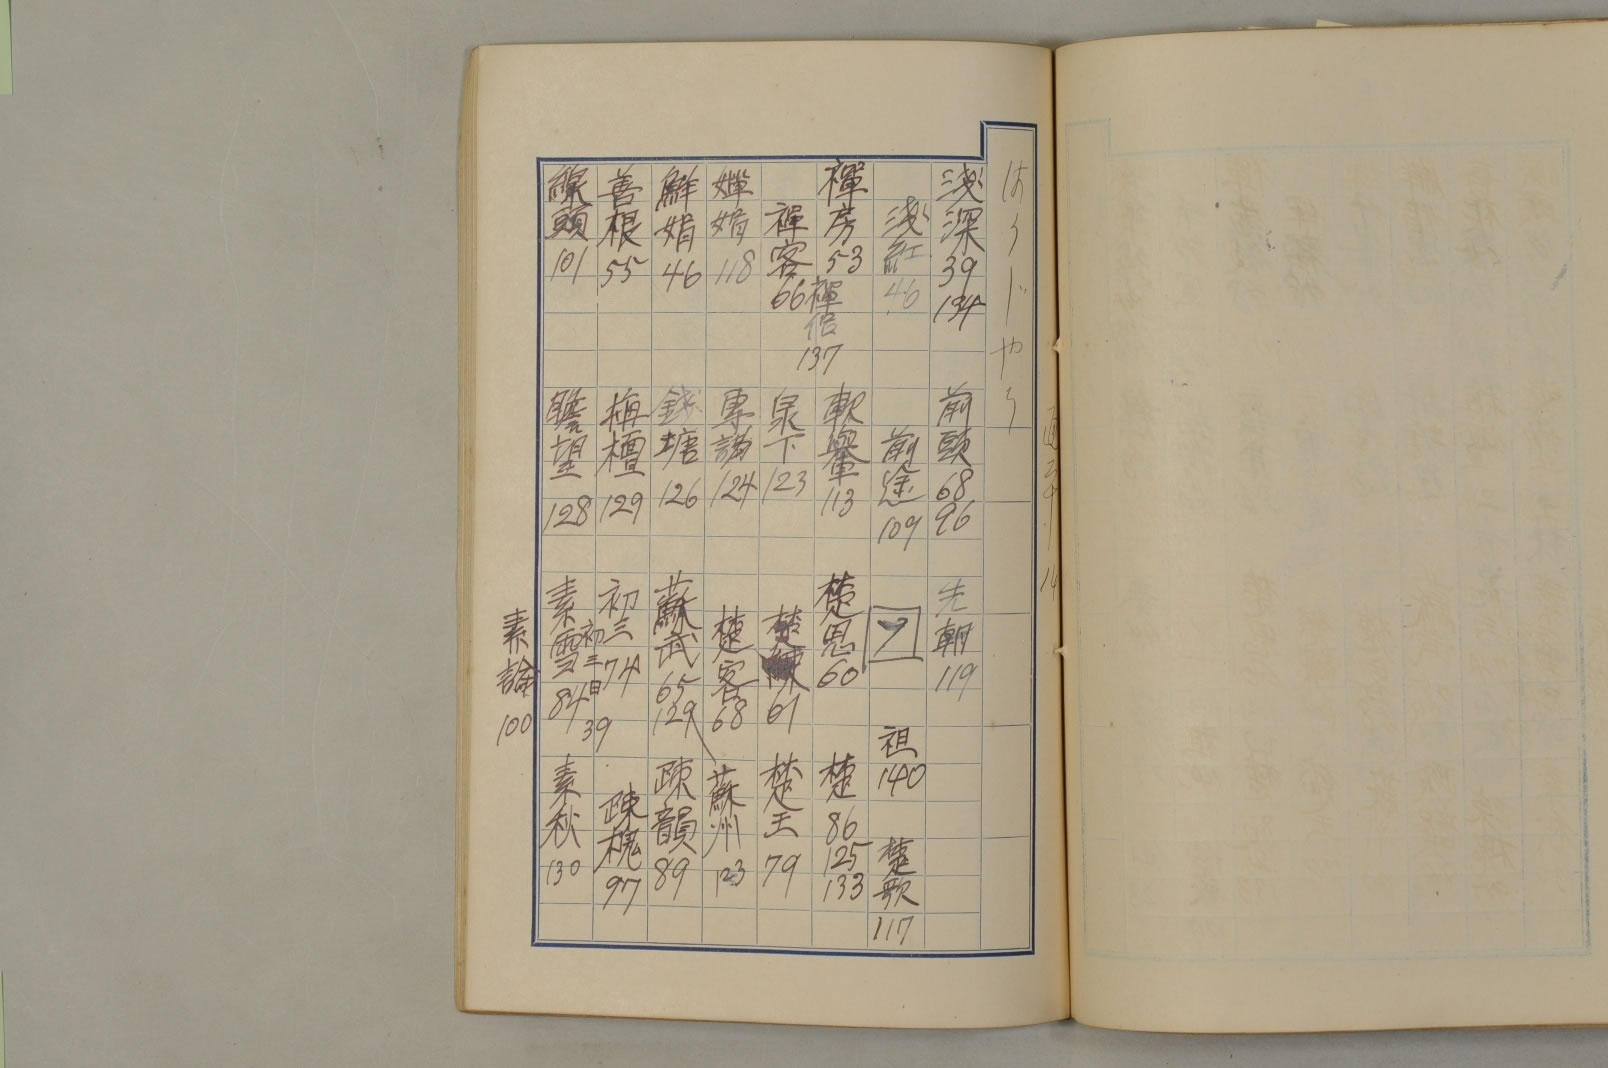 はうじやう
淺深 39 134
前頭 68 96
先朝 119
淺紅 46
前途 109
ソ
祖 140
楚歌 117
禪房 53
禪侶 137
軟轝 113
楚思 60
楚 86 125 133
禪客 66
泉下 123
61
楚王 79
嬋娟 118
專諸 124
楚客 68
蘇州 123
鮮娟 46
錢塘 126
蘇武 65 129
疎韻 89
善根 55
栴檀 129
初三 74
初三日 39
疎槐 97
線頭 101
瞻望 128
素雪 84
素秋 130
素論 100